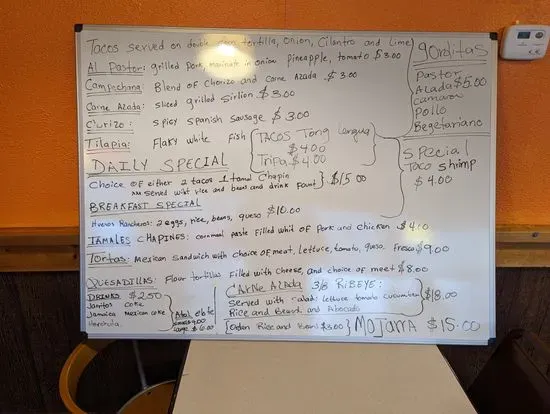 Tacos served on double corn tortilla, onion, Cilantro and Lime
Al Pastor: grilled pork, marinate in onion pineapple, tomato $3.00
Campechana: Blend of Chorizo and Carne Asada. $3.00
Carne Azada: sliced grilled sirlion $3.00
Curizo: spicy spanish Sausage $3.00
Tilapia: Flaky white fish
TACOS Tong Lengua
$4.00
Tripa $4.00
gorditas
Pastor
Azada $5.00
camaron
Pollo
Begetariano
Special
Taco shrimp
$4.00
DAILY SPECIAL
Choice OF either 2 tacos 1 tamal Chapin
served wist rice and beans and drink fount $15.00
BREAKFAST SPECIAL
Huevos Rancheros: 2 eggs, rice, beans, queso $10.00
TAMALES CHAPINES: cornmeal paste Filled whit of Pork and chicken $4.00
Tortas: Mexican Sandwich with choice of meat, lettuce, tomato, queso Fresco $9.00
QUESADILLAS: Flour tortillas Filled with cheese, and choice of meet $8.00
DRINKS $2.50
Jarritos Coke
Jamaica Mexican coke
Horchata
Atol elote
large $6.00
CARNE AZADA 3/8 RIBEYE:
Served with salad: lettuce tomato cucumber
Rice and Beans and Abocado
$18.00
Orden Rice and Beans $3.00
MOJARRA $15.00